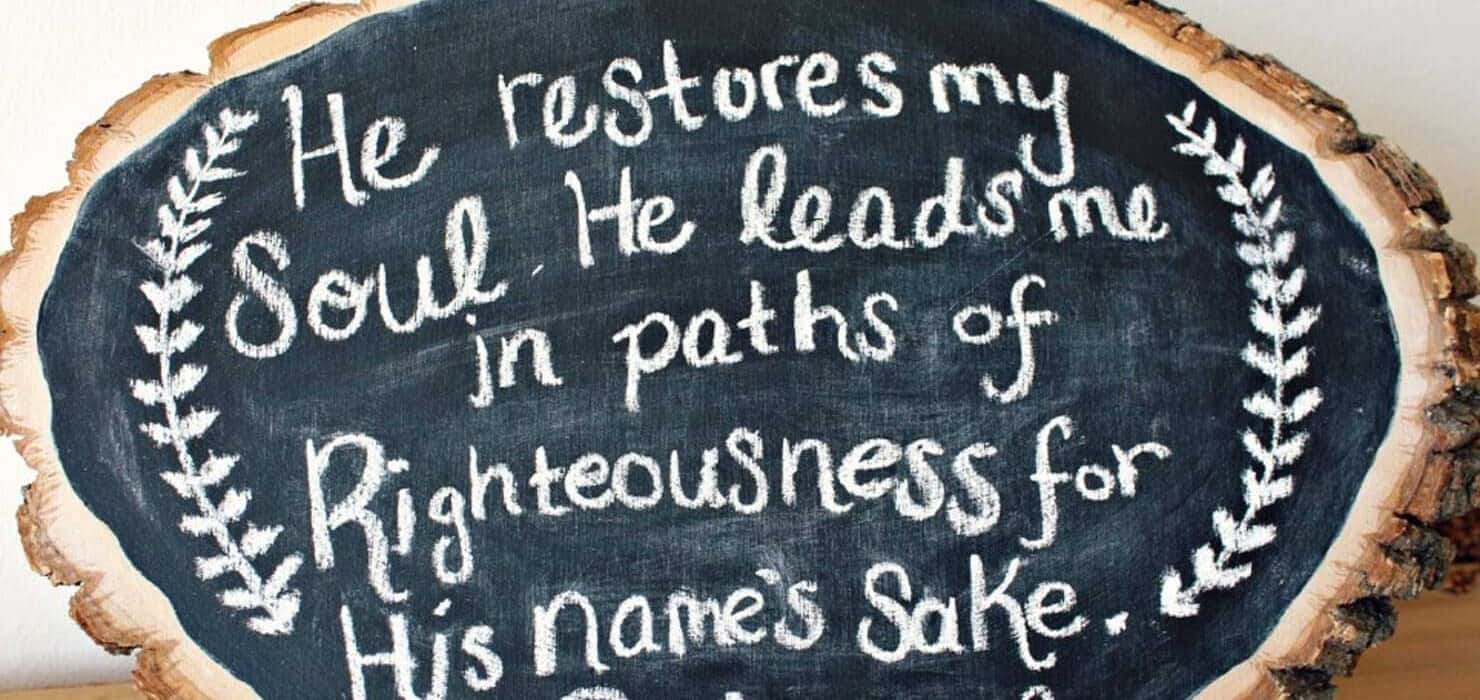 He restores my
Soul. He leads me
in paths of
Righteousness for
His name's Sake.